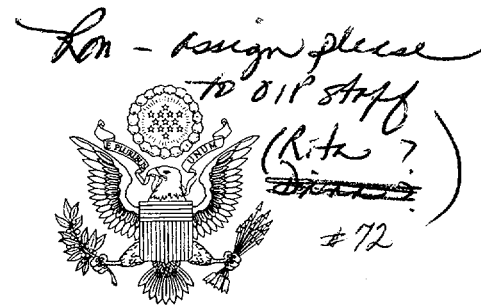 Ron – assign please
to OIP staff
(Rita ?
#72
E PLURIBUS UNUM